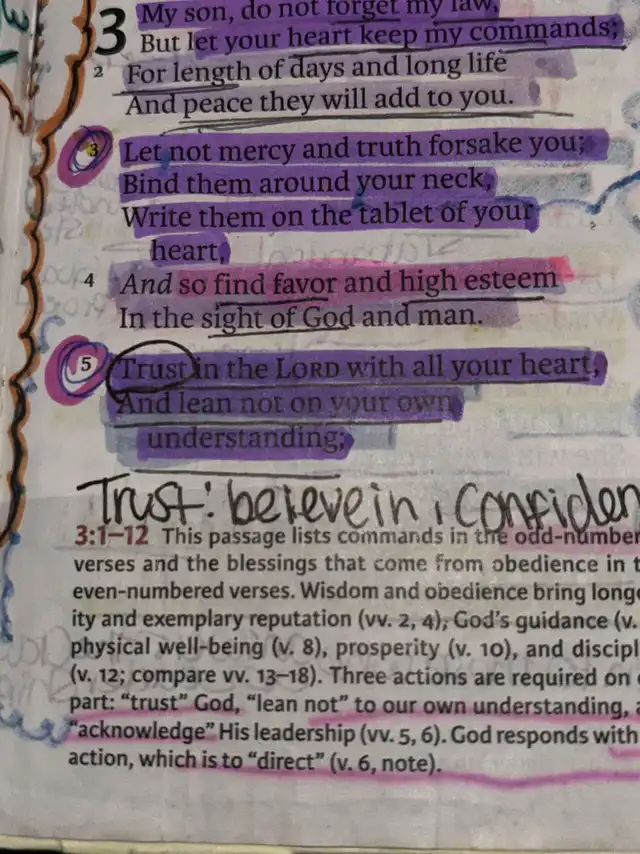 3 My son, do not forget my law,
But let your heart keep my commands;
2 For length of days and long life
And peace they will add to you.
3 Let not mercy and truth forsake you;
Bind them around your neck,
Write them on the tablet of your
heart,
4 And so find favor and high esteem
In the sight of God and man.
5 Trust in the LORD with all your heart,
And lean not on your own
understanding;
Trust: belevein, Confiden
3:1–12 This passage lists commands in the odd-number
verses and the blessings that come from obedience in t
even-numbered verses. Wisdom and obedience bring longe
ity and exemplary reputation (vv. 2, 4), God's guidance (v.
physical well-being (v. 8), prosperity (v. 10), and discipl
(v. 12; compare vv. 13–18). Three actions are required on
part: “trust” God, “lean not” to our own understanding,
“acknowledge” His leadership (vv. 5, 6). God responds with
action, which is to “direct” (v. 6, note).